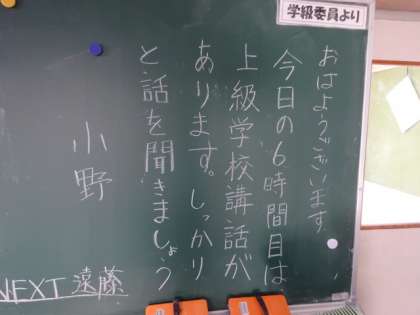 学級委員より
おはようございます
今日の6時間目は
上級学校講話が
あります。しっかり
と話を聞きましょう
小野
NEXT 遠藤